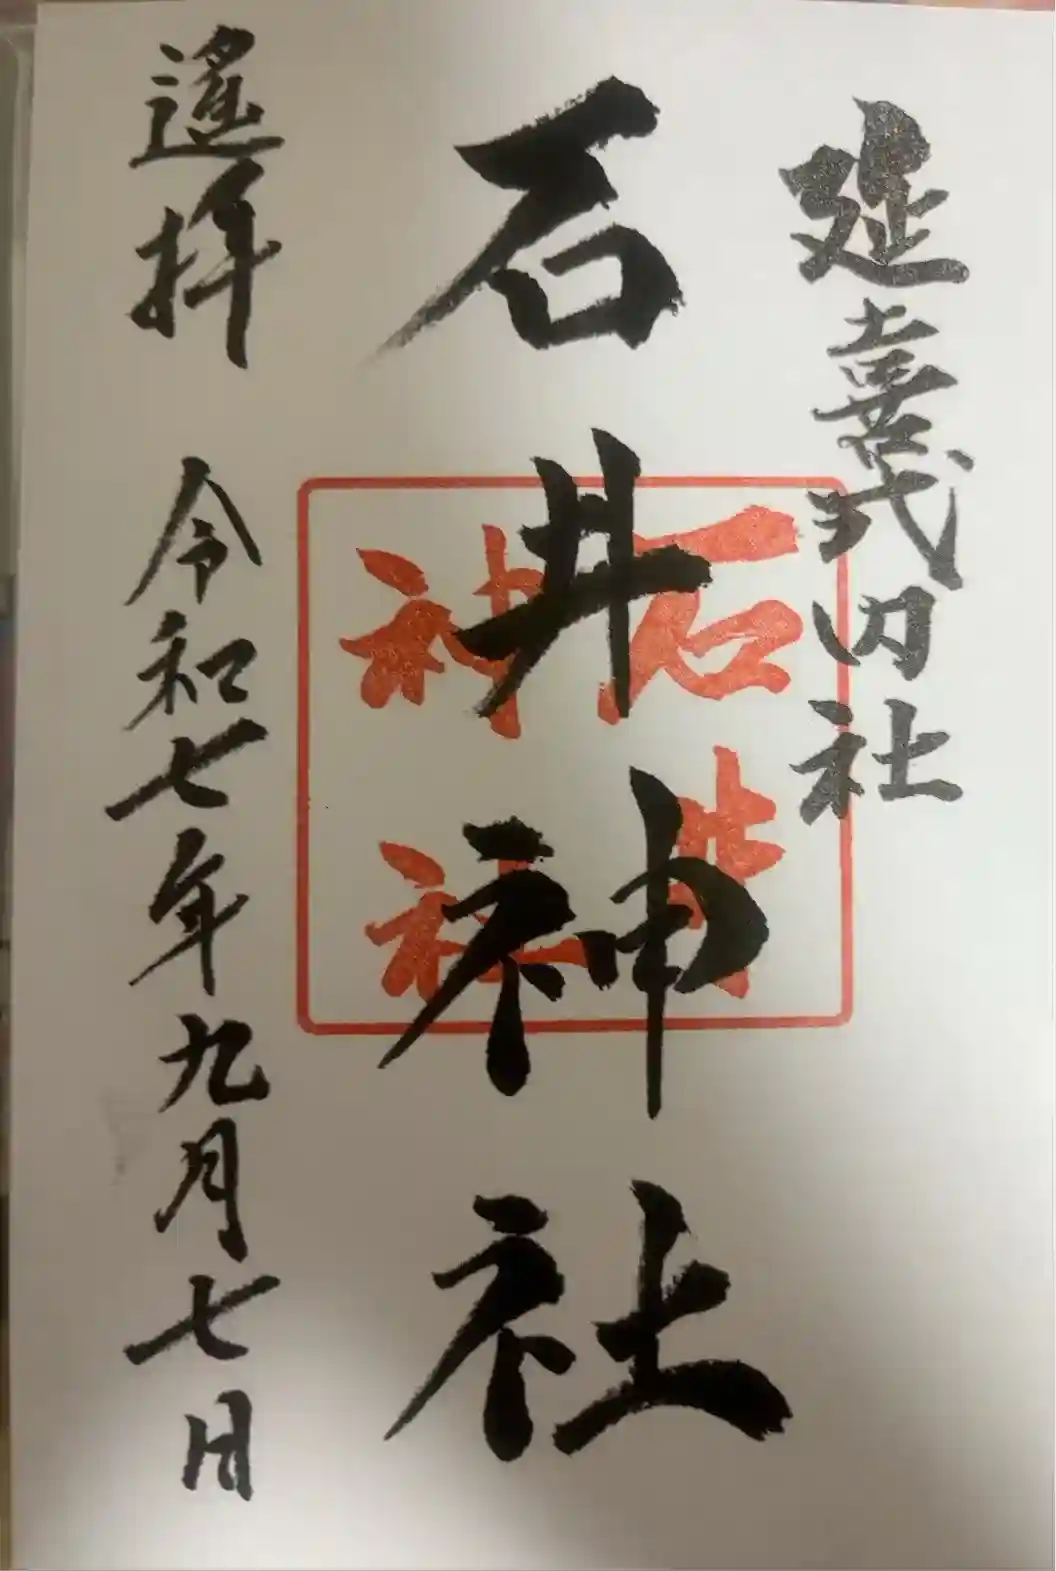 延喜式内社
石井神社
石井
神社
遙拝 令和七年九月七日